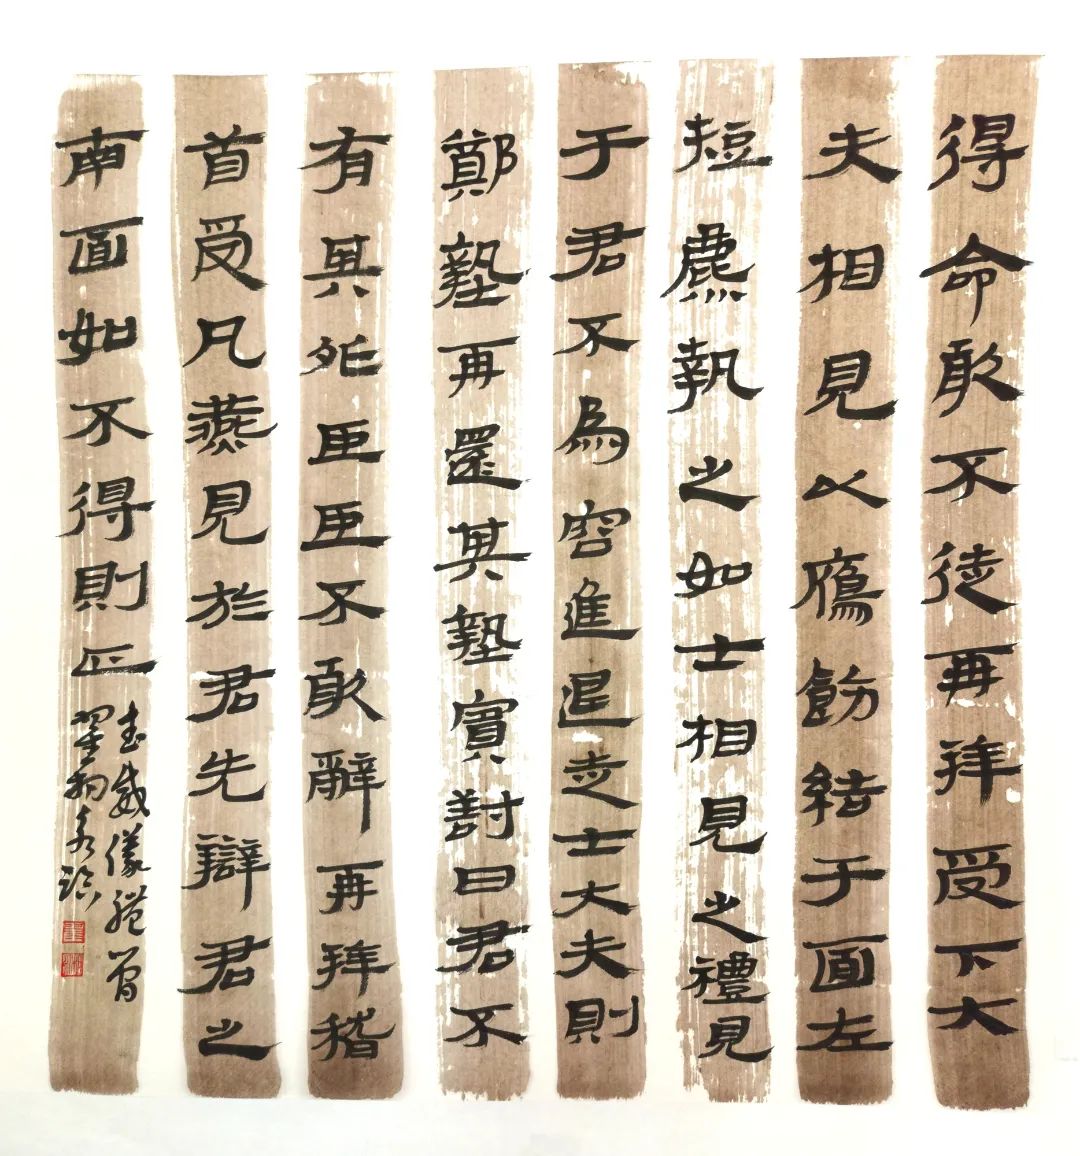 得命敢不從再拜受下大
夫相見以鴈飭結于面左
短麃執之如士相見之禮見
于君不為容進退走士大夫則
鄭塾再還其塾賓討曰君不
有其外臣臣不敢辭再拜稽
首受凡燕見於君先辯君之
南面如不得則正
武威儀禮簡
翟相永臨